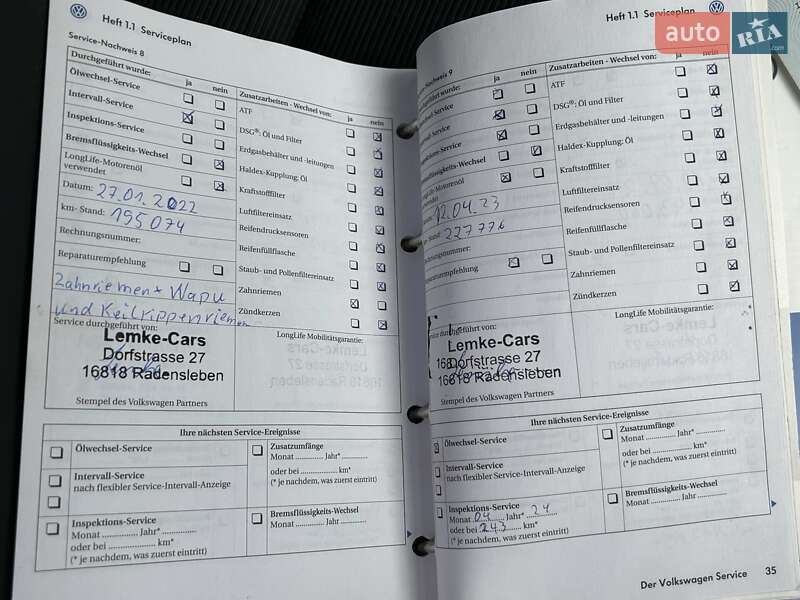 Heft 1.1 Serviceplan
Service-Nachweis 8
Durchgeführt wurde: ja nein
Ölwechsel-Service
Intervall-Service
Inspektions-Service
Bremsflüssigkeits-Wechsel
LongLife-Motorenöl
verwendet
Datum: 27.01.2022
km-Stand: 195074
Rechnungsnummer:
Reparaturempfehlung
Zahnriemen + Wapu
und Keilrippenriemen
Service durchgeführt von:
Lemke-Cars
Dorfstrasse 27
16818 Radensleben
Stempel des Volkswagen Partners
Zusatzarbeiten - Wechsel von: ja nein
ATF
DSG®: Öl und Filter
Erdgasbehälter und -leitungen
Haldex-Kupplung: Öl
Kraftstofffilter
Luftfiltereinsatz
Reifendrucksensoren
Reifenfüllflasche
Staub- und Pollenfiltereinsatz
Zahnriemen
Zündkerzen
LongLife Mobilitätsgarantie:
Ihre nächsten Service-Ereignisse
Ölwechsel-Service
Intervall-Service
nach flexibler Service-Intervall-Anzeige
Inspektions-Service
Monat .............. Jahr* ..............
oder bei ...................... km*
(* je nachdem, was zuerst eintritt)
Zusatzumfänge
Monat .............. Jahr* ..............
oder bei ...................... km*
(* je nachdem, was zuerst eintritt)
Bremsflüssigkeits-Wechsel
Monat .............. Jahr ..............
Heft 1.1 Serviceplan
auto RIA.com
-Nachweis 9
geführt wurde: ja nein
-Service
-Service
-Service
Bremsflüssigkeits-Wechsel
LongLife-Motorenöl
verwendet
12.04.23
-Stand: 227776
Rechnungsnummer:
empfehlung
durchgeführt von:
Lemke-Cars
Dorfstrasse 27
16818 Radensleben
Stempel des Volkswagen Partners
Zusatzarbeiten - Wechsel von: ja nein
ATF
DSG®: Öl und Filter
Erdgasbehälter und -leitungen
Haldex-Kupplung: Öl
Kraftstofffilter
Luftfiltereinsatz
Reifendrucksensoren
Reifenfüllflasche
Staub- und Pollenfiltereinsatz
Zahnriemen
Zündkerzen
LongLife Mobilitätsgarantie:
Ihre nächsten Service-Ereignisse
Ölwechsel-Service
Intervall-Service
nach flexibler Service-Intervall-Anzeige
Inspektions-Service
Monat 04 Jahr* 24
oder bei 243 km*
(* je nachdem, was zuerst eintritt)
Zusatzumfänge
Monat .............. Jahr* ..............
oder bei ...................... km*
(* je nachdem, was zuerst eintritt)
Bremsflüssigkeits-Wechsel
Monat .............. Jahr ..............
Der Volkswagen Service 35